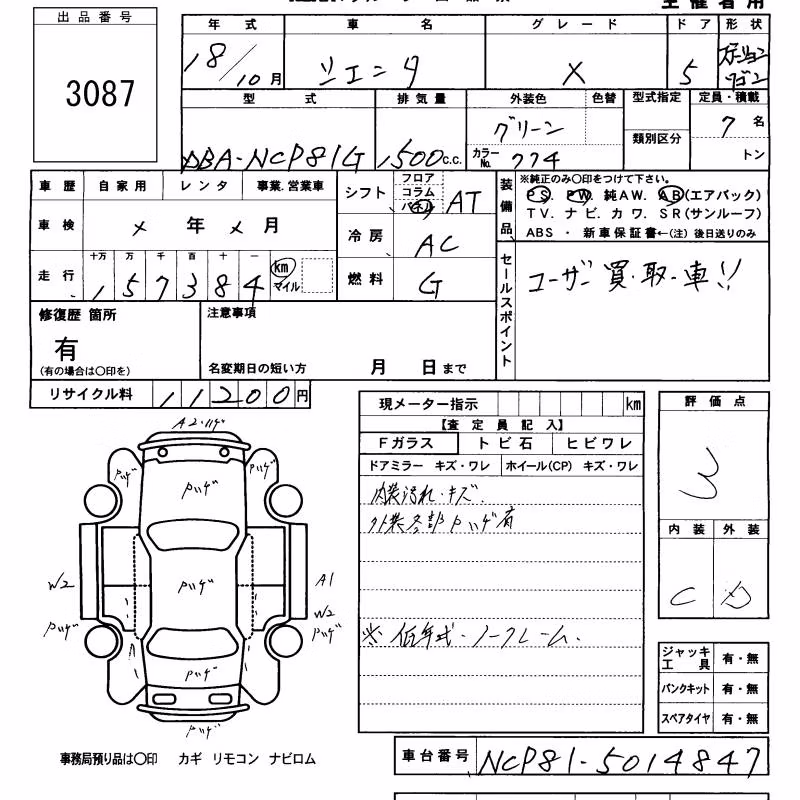 出品番号
3087
主催者用
年式 車名 グレード ドア 形状
18/10月 シエンタ X 5 ステーションワゴン
型式 排気量 外装色 色替 型式指定 定員・積載
DBA-NCP81G 1,500c.c. グリーン 類別区分 7名
カラーNo. 774 トン
車歴 自家用 レンタ 事業.営業車
車検 メ 年 メ 月
走行 十万 万 千 百 十 一
157384 km マイル
シフト フロア コラム パネル AT
冷房 AC
燃料 G
装備品
※純正のみ〇印をつけて下さい。
PS. PW. 純AW. AB(エアバック)
TV. ナビ. カワ. SR(サンルーフ)
ABS ・ 新車保証書←(注) 後日送りのみ
セールスポイント
ユーザー買・取・車!!
修復歴 箇所
有
(有の場合は〇印を)
注意事項
名変期日の短い方 月 日まで
リサイクル料 11200円
現メーター指示 km
【査定員記入】
Fガラス トビ石 ヒビワレ
ドアミラー キズ・ワレ ホイール(CP) キズ・ワレ
内装汚れ・キズ.
外装各部ハゲ有
※ 低年式・ノークレーム.
評価点
3
内装 外装
C D
A2・ハゲ
ハゲ
ハゲ
ハゲ
ハゲ
W2
A1
W2
ハゲ
ハゲ
ハゲ
ジャッキ工具 有・無
パンクキット 有・無
スペアタイヤ 有・無
事務局預り品は〇印 カギ リモコン ナビロム
車台番号 NCP81-5014847